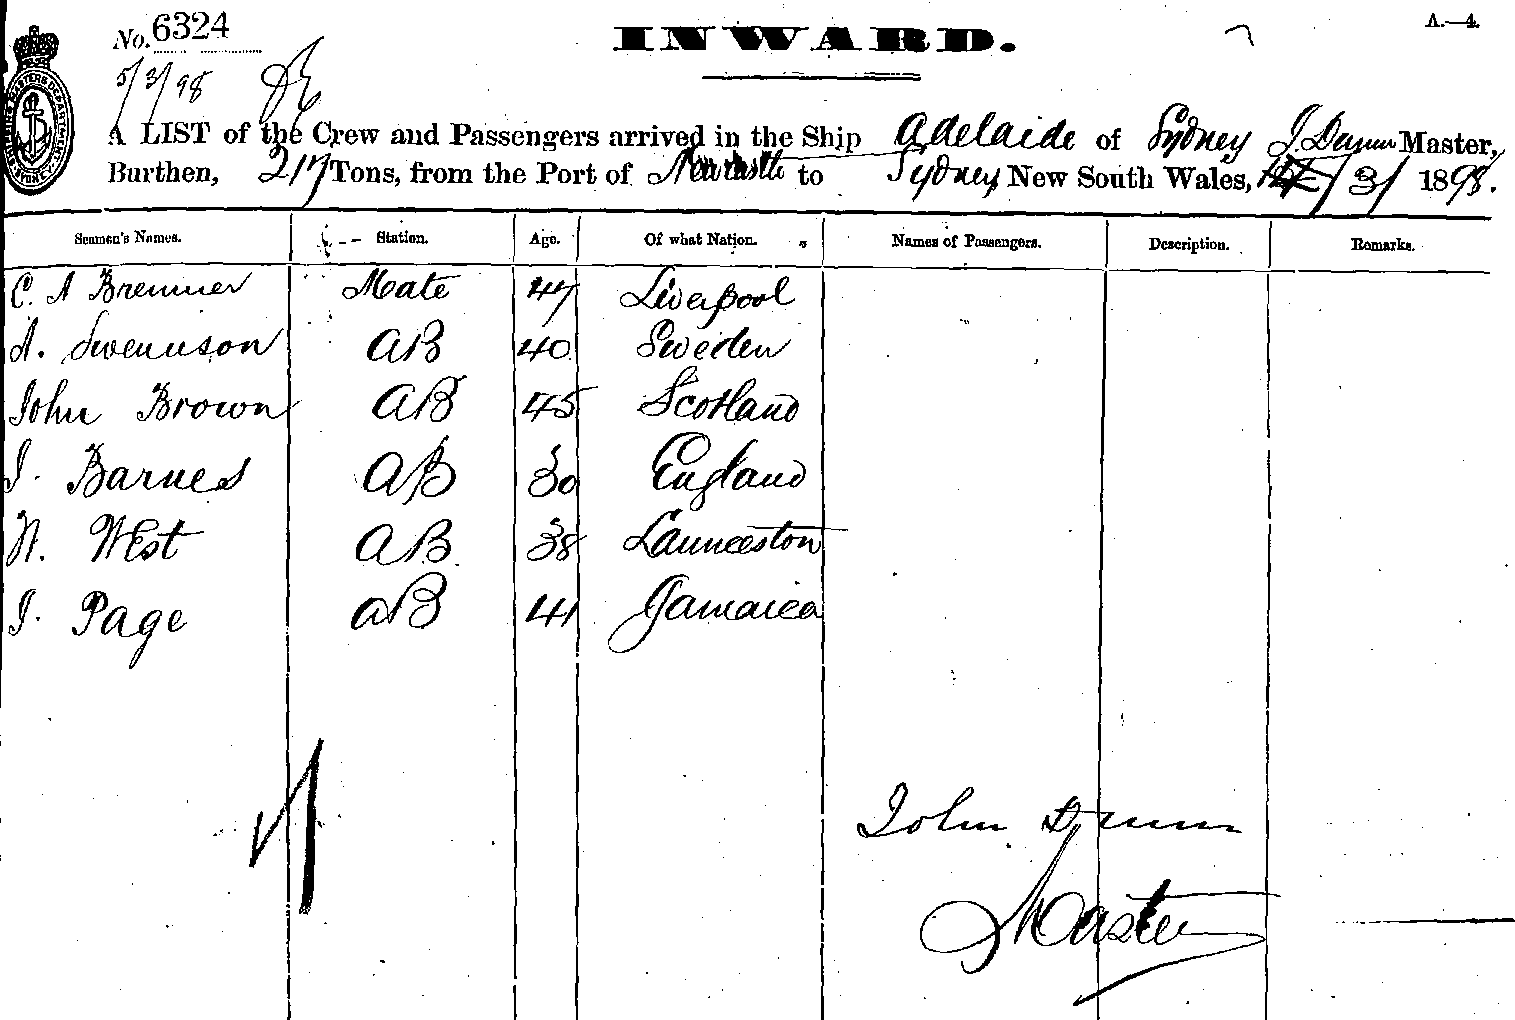 No. 6324
INWARD.
A.—4.
5/3/98
A LIST of the Crew and Passengers arrived in the Ship Adelaide of Sydney J. Dunn Master,
Burthen, 217 Tons, from the Port of Newcastle to Sydney New South Wales, /3/ 1898.
Seamen's Names. Station. Age. Of what Nation. Names of Passengers. Description. Remarks.
C. A Bremner Mate 47 Liverpool
A. Swennson AB 40 Sweden
John Brown AB 45 Scotland
J. Barnes AB 30 England
W. West AB 38 Launceston
J. Page AB 41 Jamaica
John Dunn
Master